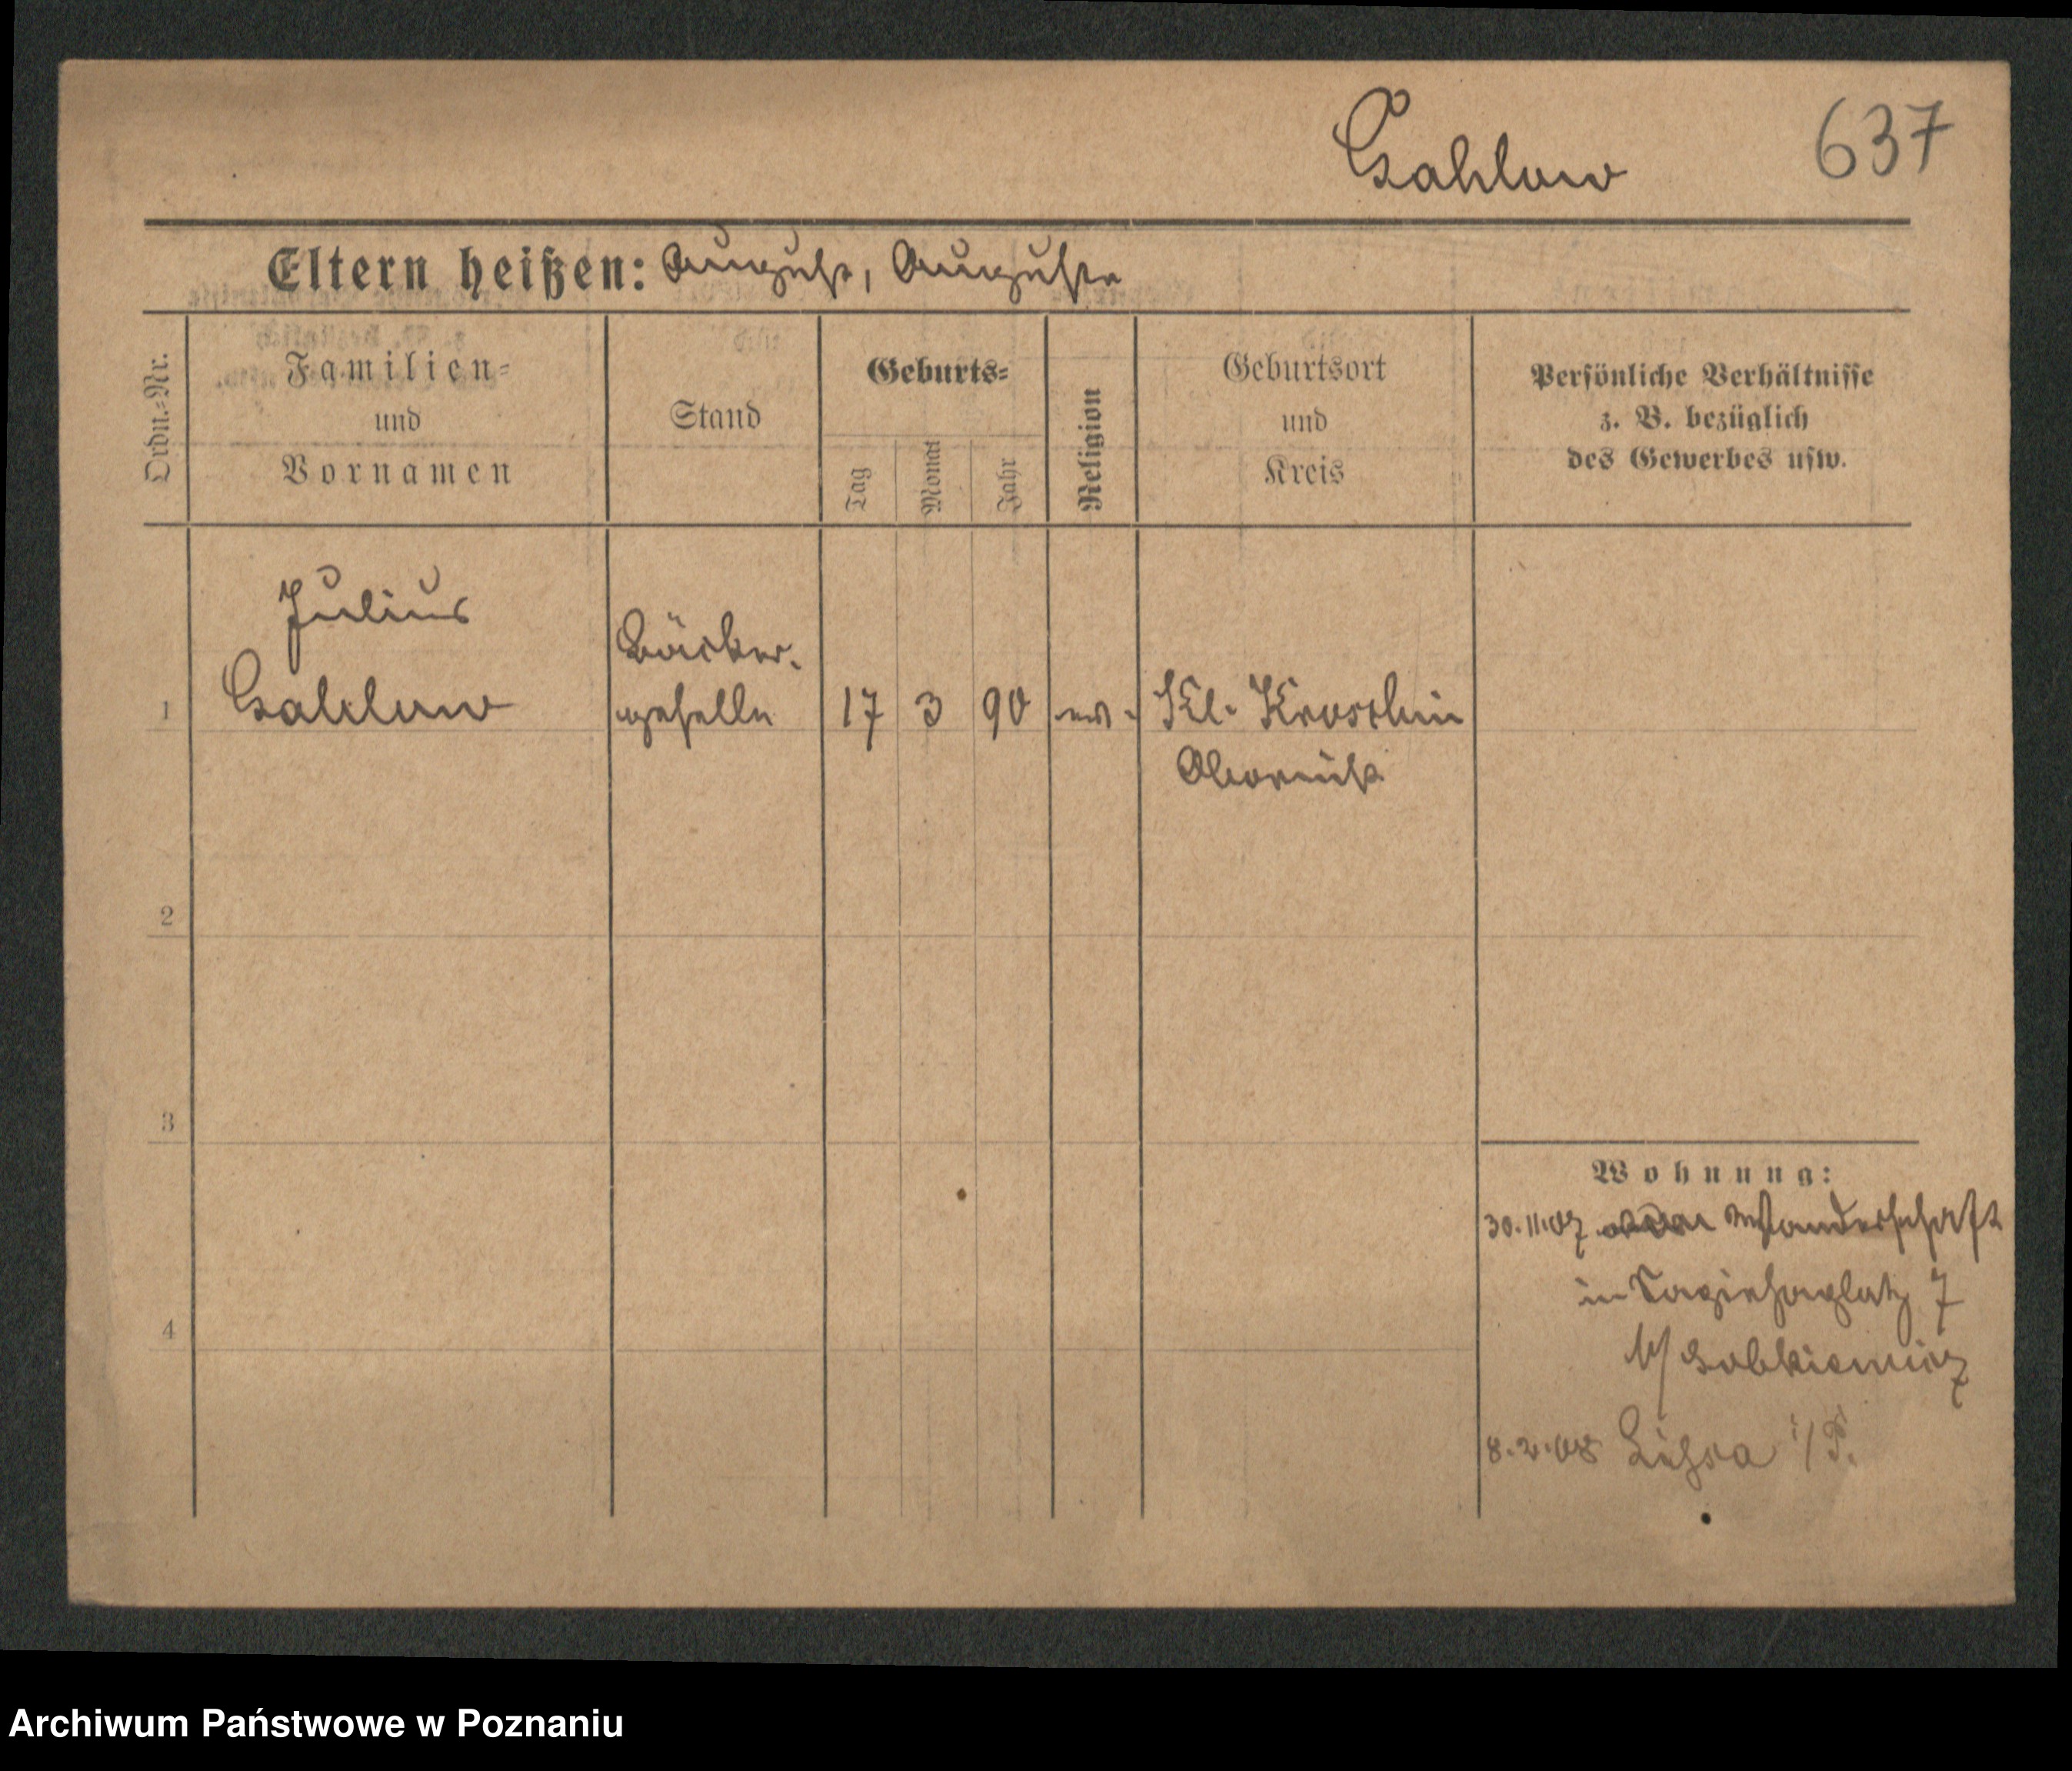 Gahlow 637
Eltern heißen: August, Auguste
Ordn.-Nr.
Familien-
und
Vornamen
Stand
Geburts-
Tag
Monat
Jahr
Religion
Geburtsort
und
Kreis
Persönliche Verhältnisse
z. B. bezüglich
des Gewerbes usw.
Julius
Gahlow
Bäcker-
geselle
1 17 3 90 ev. Kl. Kroschin
Obornik
2
3
4
Wohnung:
30.11.07 Wanderschaft
in Sapiehaplatz 7
b/ Sobkiewicz
8.2.08 Lissa i/P.
Archiwum Państwowe w Poznaniu